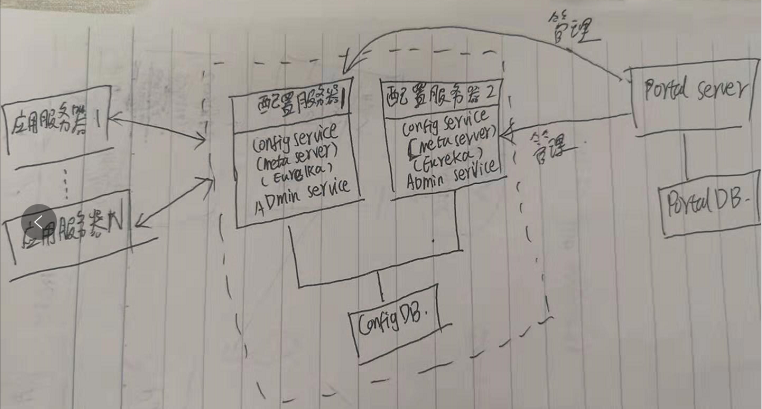 管理
应用服务器1
应用服务器N
配置服务器1
Config service
(meta server)
(Eureka)
ADmin service
配置服务器2
Config service
(meta server)
(Eureka)
Admin service
管理
Portal server
Portal DB.
Config DB.